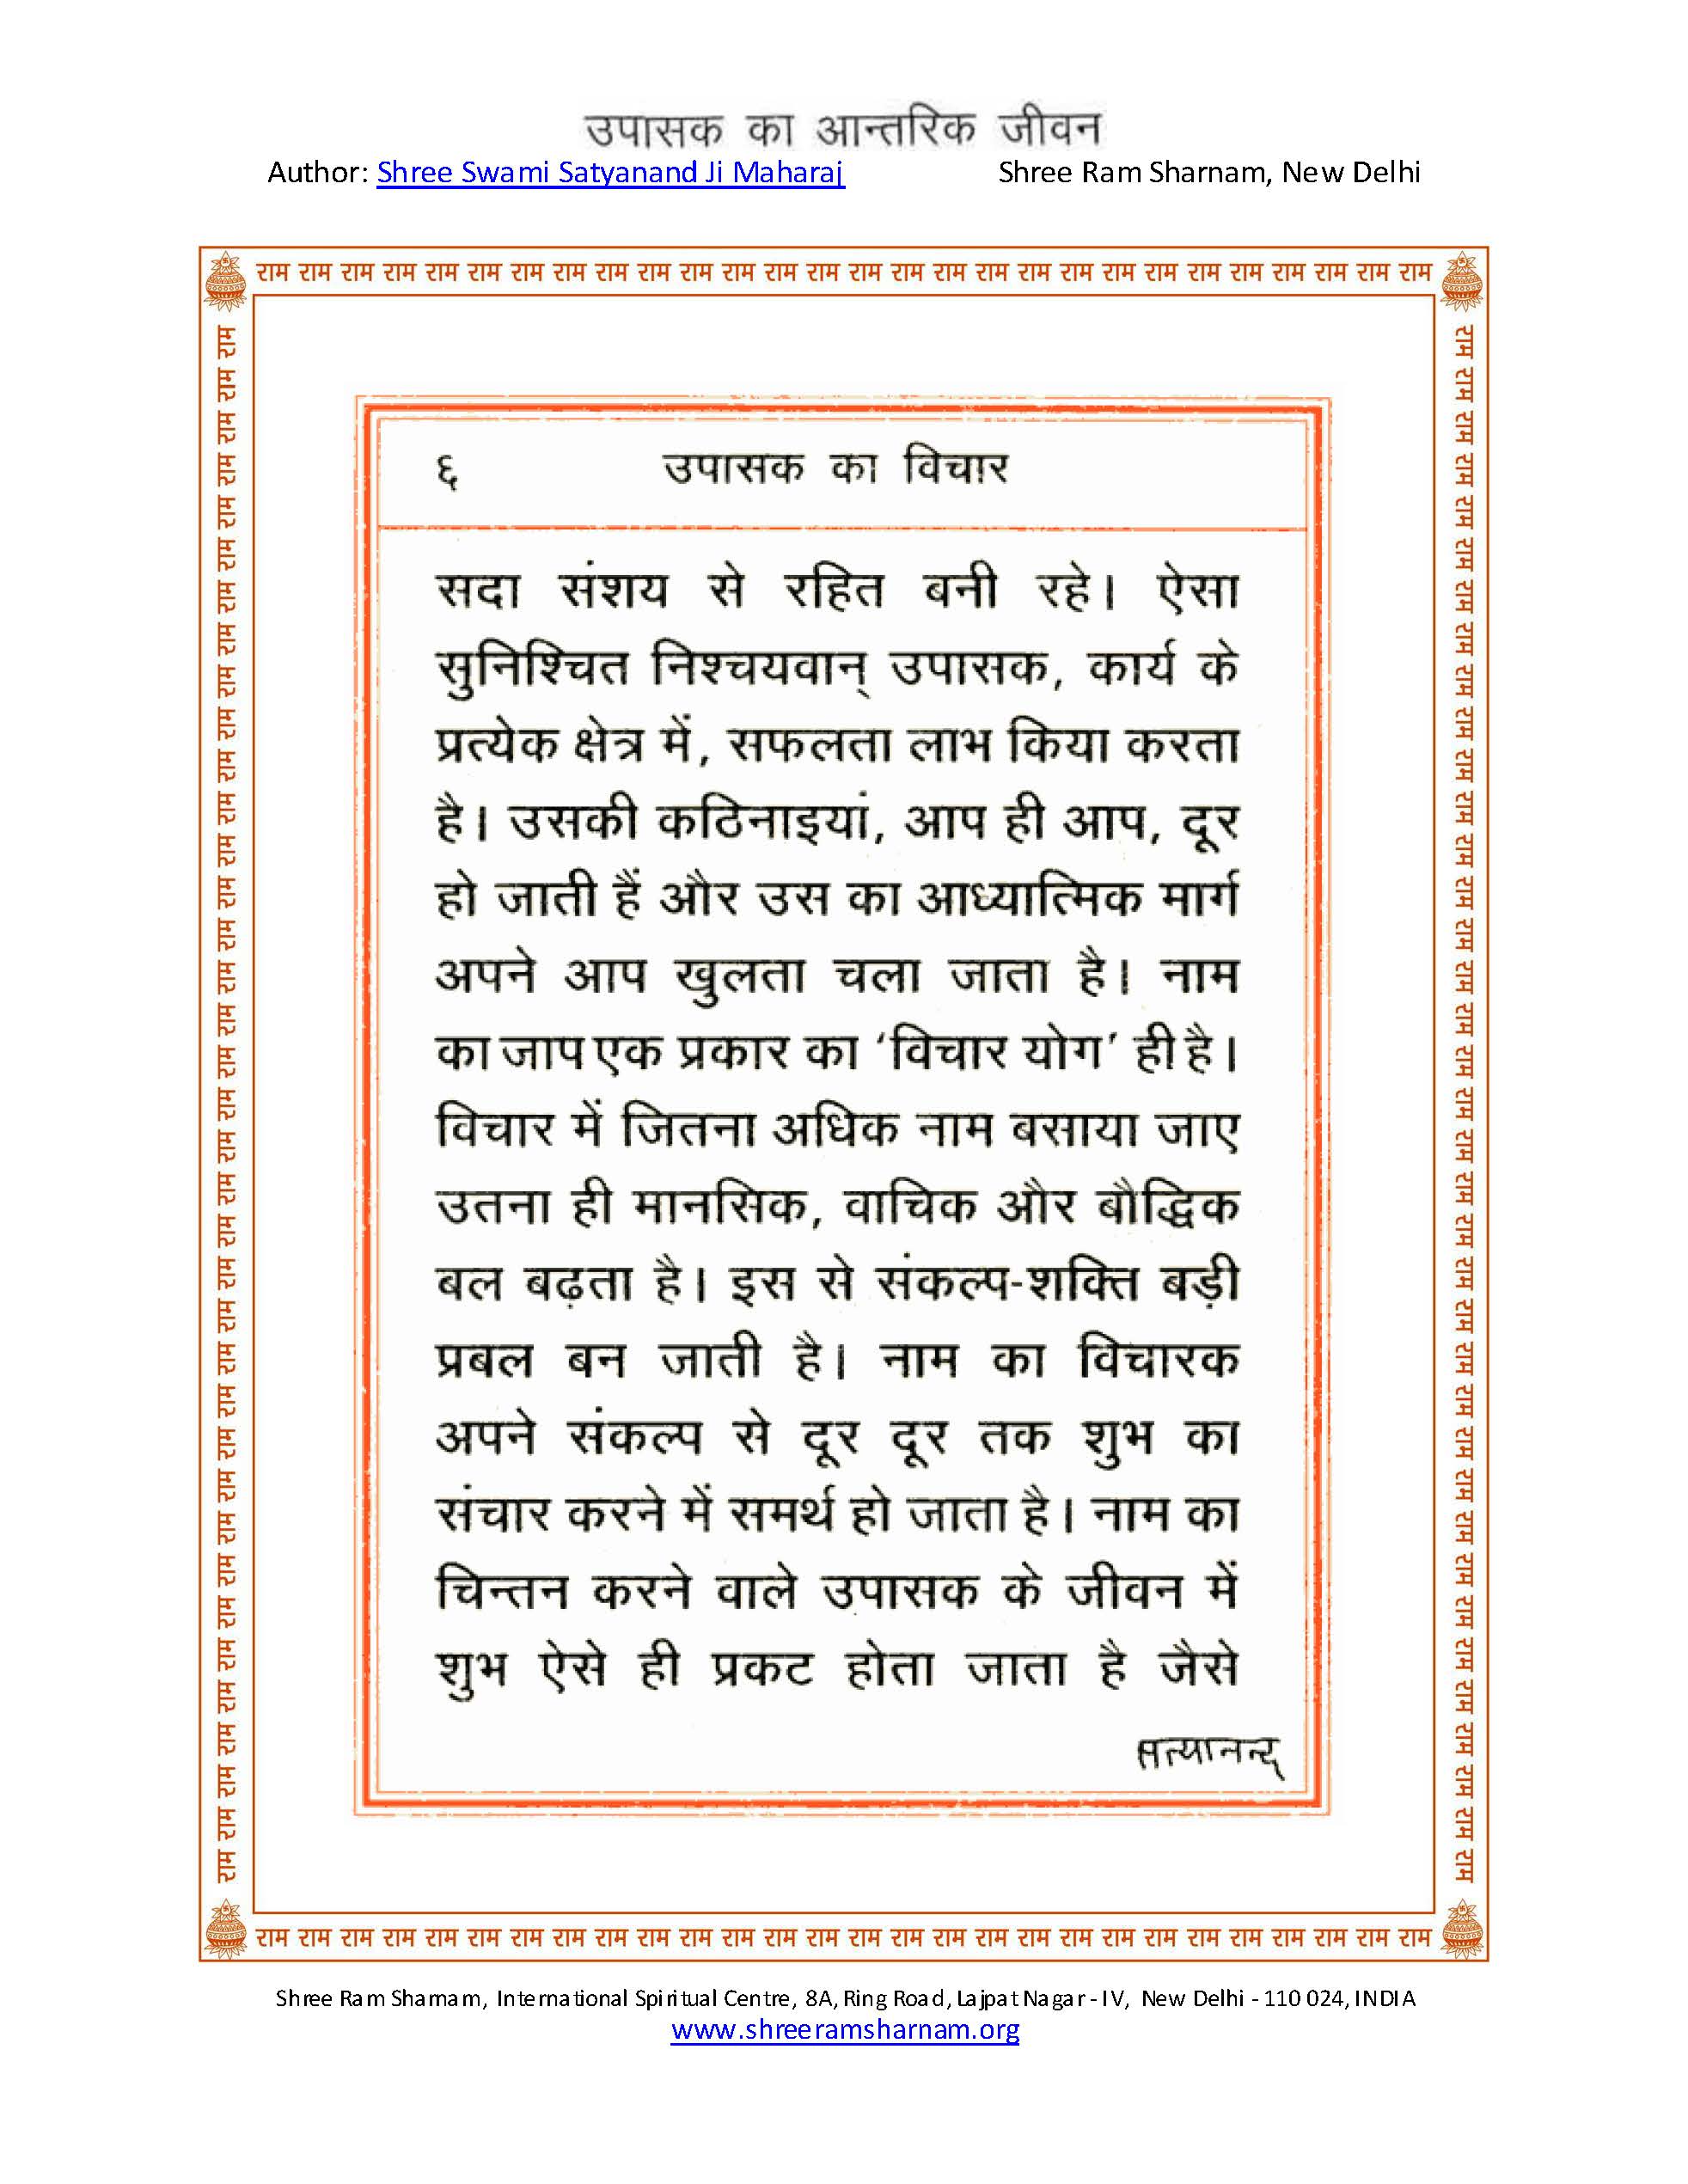 उपासक का आन्तरिक जीवन
Author: Shree Swami Satyanand Ji Maharaj Shree Ram Sharnam, New Delhi
राम राम राम राम राम राम राम राम राम राम राम राम राम राम राम राम राम राम राम राम राम राम राम राम राम राम राम राम
६ उपासक का विचार
सदा संशय से रहित बनी रहे। ऐसा
सुनिश्चित निश्चयवान् उपासक, कार्य के
प्रत्येक क्षेत्र में, सफलता लाभ किया करता
है। उसकी कठिनाइयां, आप ही आप, दूर
हो जाती हैं और उस का आध्यात्मिक मार्ग
अपने आप खुलता चला जाता है। नाम
का जाप एक प्रकार का ‘विचार योग’ ही है।
विचार में जितना अधिक नाम बसाया जाए
उतना ही मानसिक, वाचिक और बौद्धिक
बल बढ़ता है। इस से संकल्प-शक्ति बड़ी
प्रबल बन जाती है। नाम का विचारक
अपने संकल्प से दूर दूर तक शुभ का
संचार करने में समर्थ हो जाता है। नाम का
चिन्तन करने वाले उपासक के जीवन में
शुभ ऐसे ही प्रकट होता जाता है जैसे
सत्यानन्द
राम राम राम राम राम राम राम राम राम राम राम राम राम राम राम राम राम राम राम राम राम राम राम राम राम राम राम राम राम राम राम राम राम राम राम राम राम
राम राम राम राम राम राम राम राम राम राम राम राम राम राम राम राम राम राम राम राम राम राम राम राम राम राम राम राम राम राम राम राम राम राम राम राम राम
राम राम राम राम राम राम राम राम राम राम राम राम राम राम राम राम राम राम राम राम राम राम राम राम राम राम राम राम
Shree Ram Sharnam, International Spiritual Centre, 8A, Ring Road, Lajpat Nagar - IV, New Delhi - 110 024, INDIA
www.shreeramsharnam.org